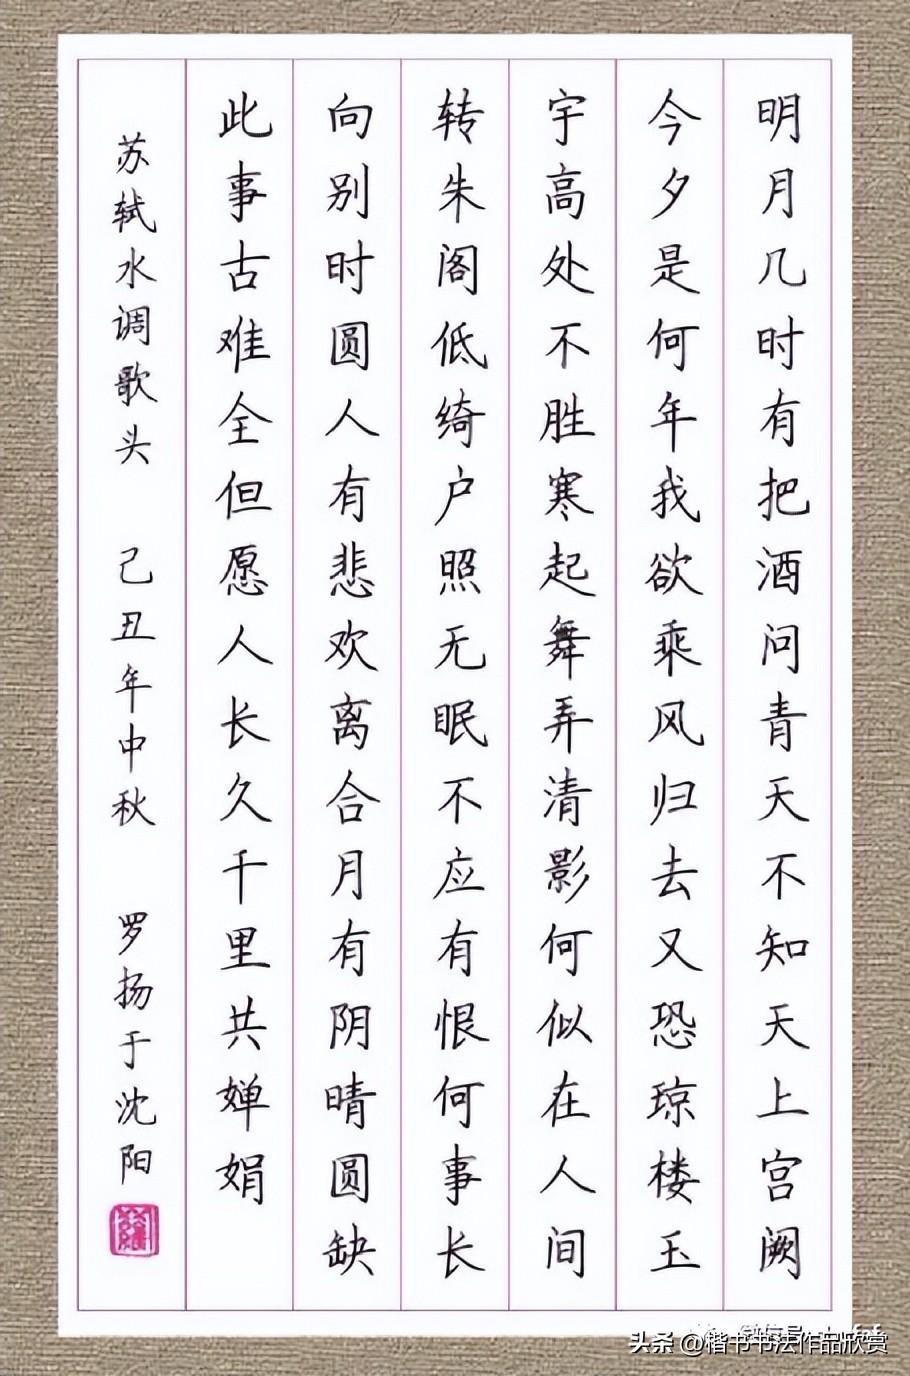 明月几时有把酒问青天不知天上宫阙
今夕是何年我欲乘风归去又恐琼楼玉
宇高处不胜寒起舞弄清影何似在人间
转朱阁低绮户照无眠不应有恨何事长
向别时圆人有悲欢离合月有阴晴圆缺
此事古难全但愿人长久千里共婵娟
苏轼水调歌头 己丑年中秋 罗扬于沈阳
头条 @楷书书法作品欣赏